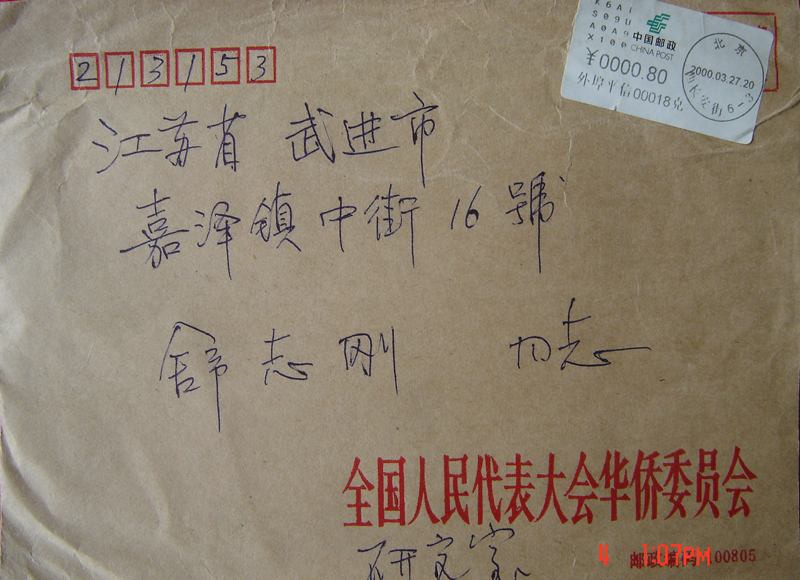 K6A1
S09U
A0A9
X100
中国邮政
CHINA POST
¥0000.80
外埠平信00018克
北京
2000.03.27.20
长安街6-3
213153
江苏省 武进市
嘉泽镇中街 16 號
舒志刚 同志
全国人民代表大会华侨委员会
研究室
邮政编码 100805
4 1:07PM